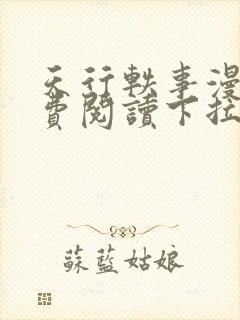 天行軼事漫
費閱讀下拉
蘇藍姑娘